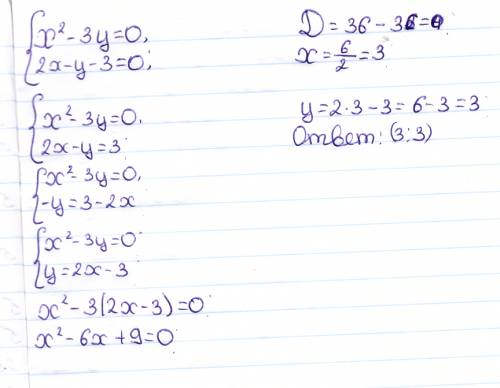 x² - 3y = 0,
2x - y - 3 = 0;
x² - 3y = 0,
2x - y = 3
x² - 3y = 0,
-y = 3 - 2x
x² - 3y = 0
y = 2x - 3
x² - 3(2x - 3) = 0
x² - 6x + 9 = 0
D = 36 - 36 = 0
x = 6/2 = 3
y = 2·3 - 3 = 6 - 3 = 3
Ответ: (3; 3)